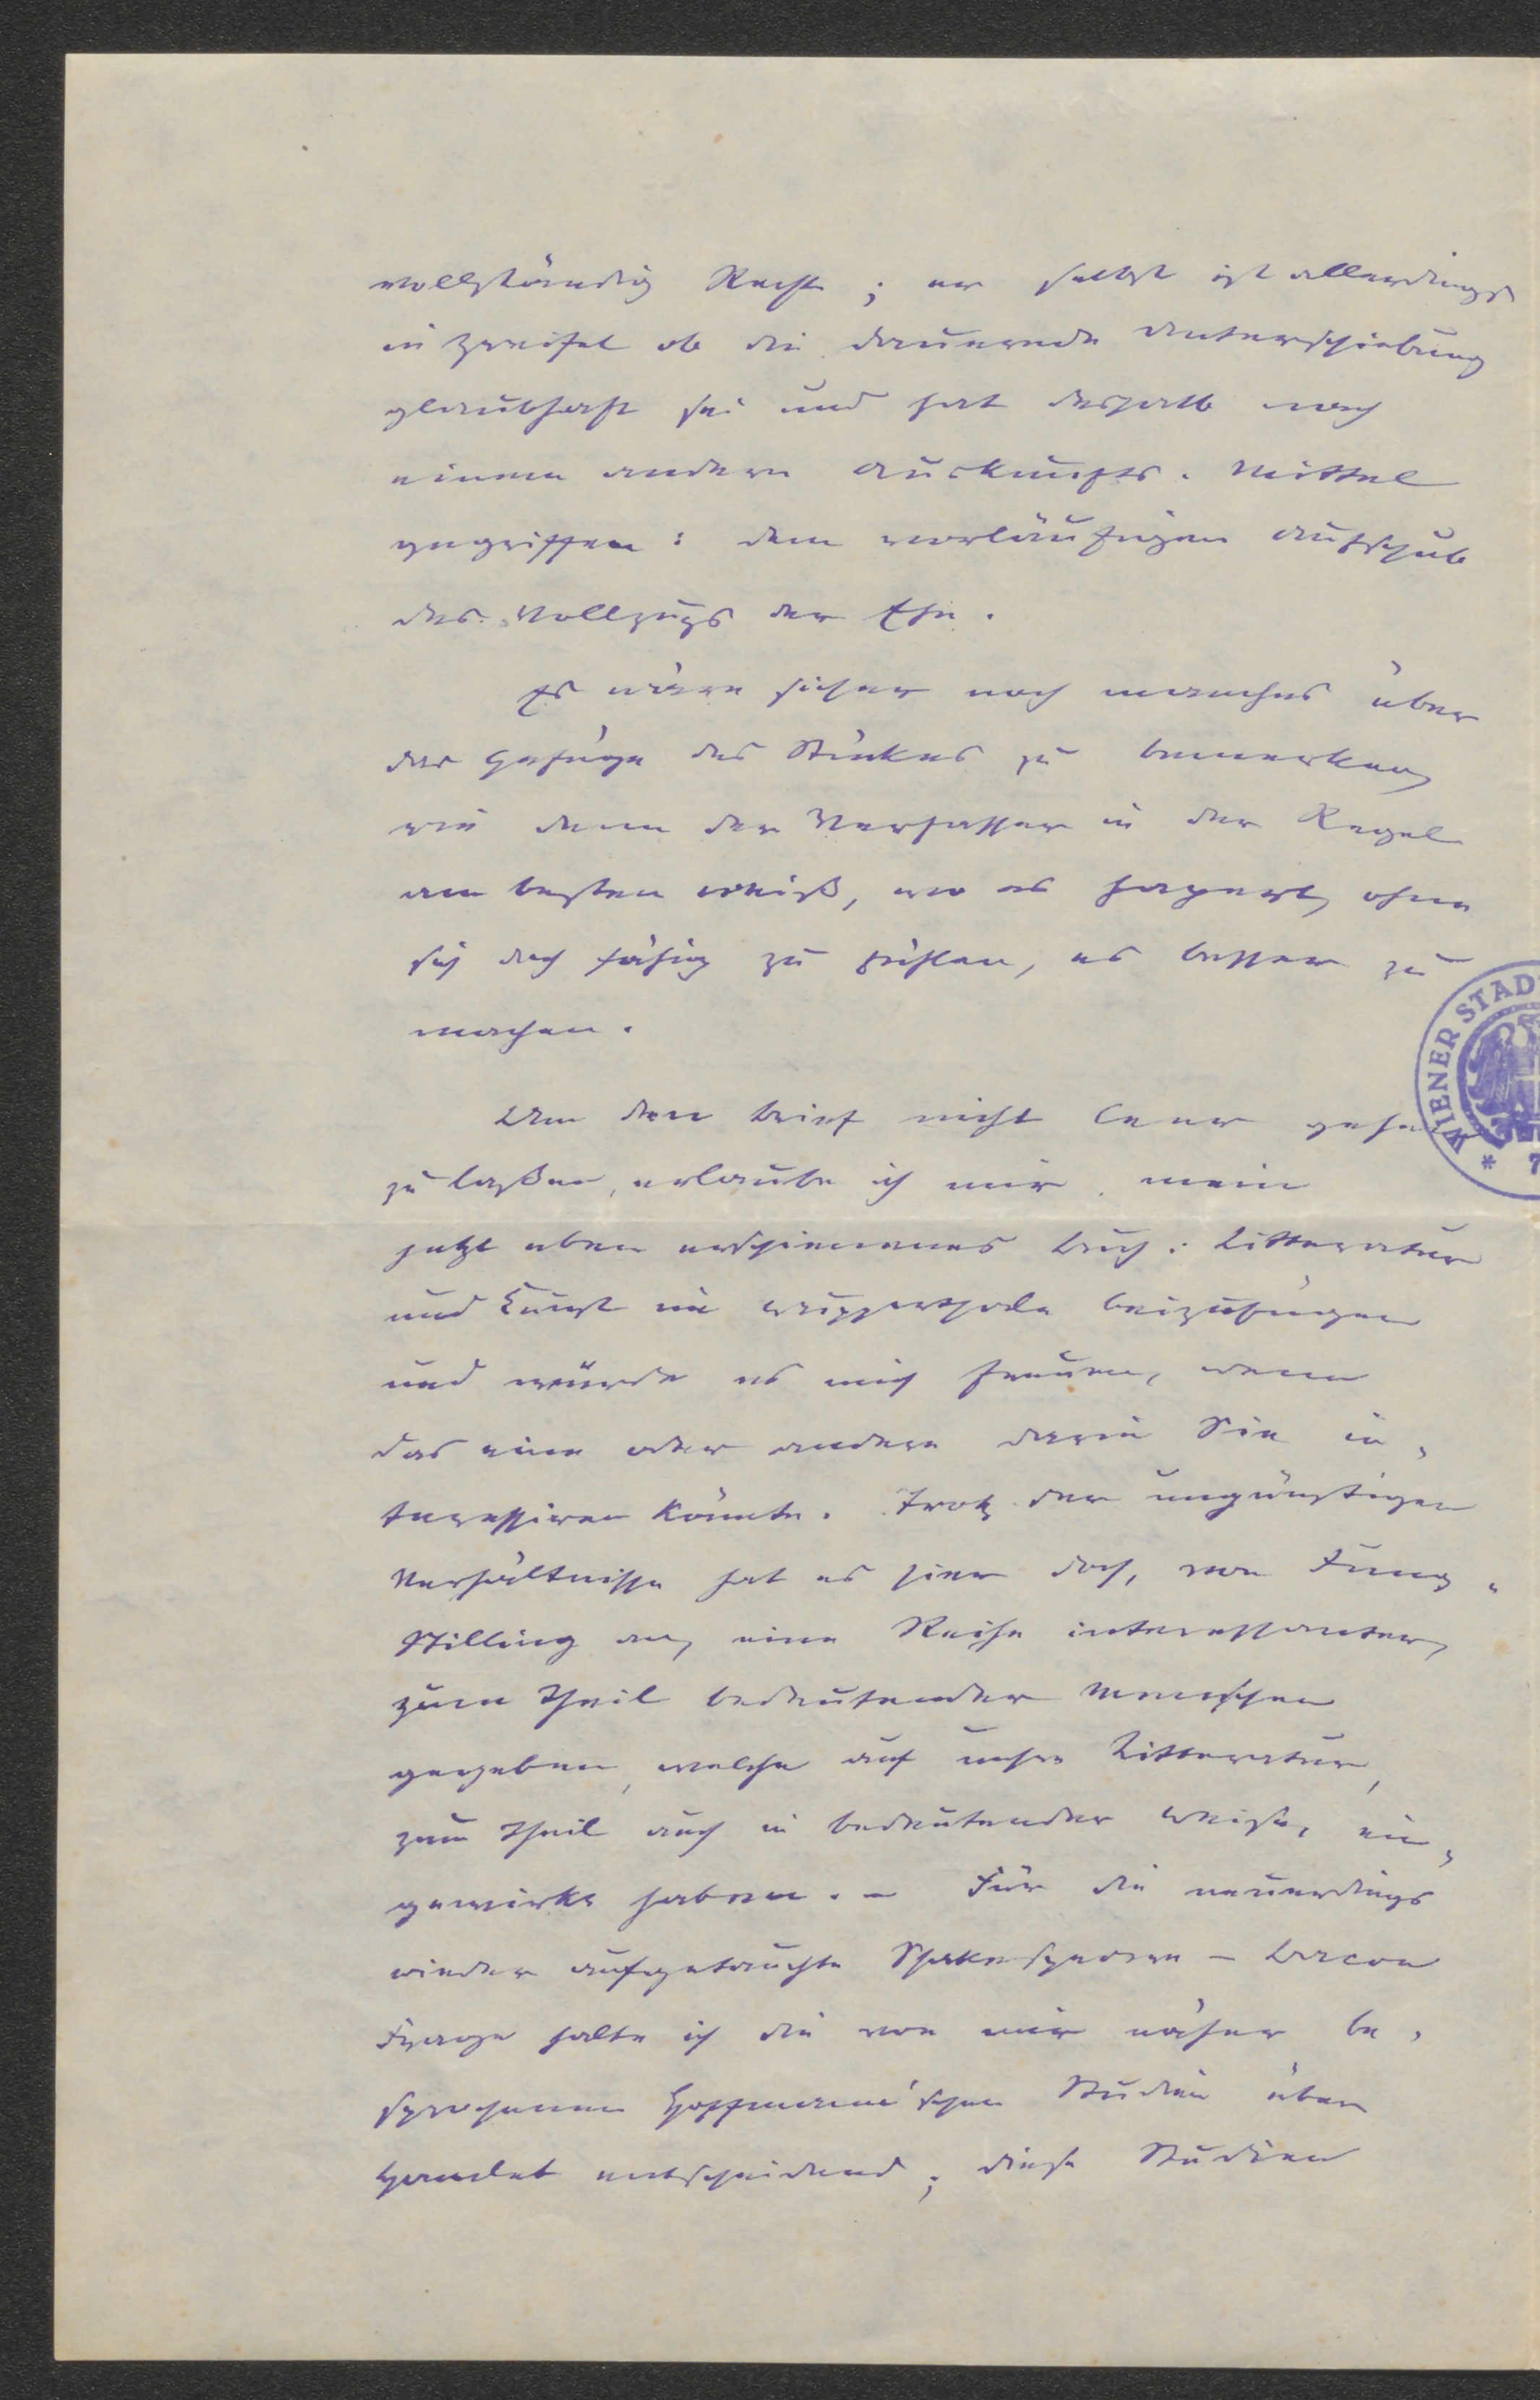 vollständig Recht; er selbst ist allerdings
in Zweifel ob die dauernde Unterschiebung
glaubhaft sei und hat deshalb nach
einem andern Auskunfts-Mittel
gegriffen: dem vorläufigen Aufschub
des Vollzugs der Ehe.
Es wäre sicher noch manches über
das Gefüge des Stückes zu bemerken,
wie denn der Verfasser in der Regel
am besten weiß, wo es hapert, ohne
sich doch fähig zu fühlen, es besser zu
machen.
Um den Brief nicht leer gehen
zu laßen, erlaube ich mir, mein
jetzt eben erschienenes Buch: Litteratur
und Kunst im Wupperthale beizufügen
und würde es mich freuen, wenn
das eine oder andere darin Sie in-
teressiren könnte. Trotz der ungünstigen
Verhältnisse hat es hier doch, von Jung-
Stilling an, eine Reihe interessanter,
zum Theil bedeutender Menschen
gegeben, welche auf unsre Litteratur,
zum Theil auch in bedeutender Weise, ein-
gewirkt haben. – Für die neuerdings
wieder aufgetauchte Shakespeare-Bacon
Frage halte ich die von mir näher be-
sprochenen Hoffmann'schen Studien über
Hamlet entscheidend; diese Studien
WIENER STAD
* 7